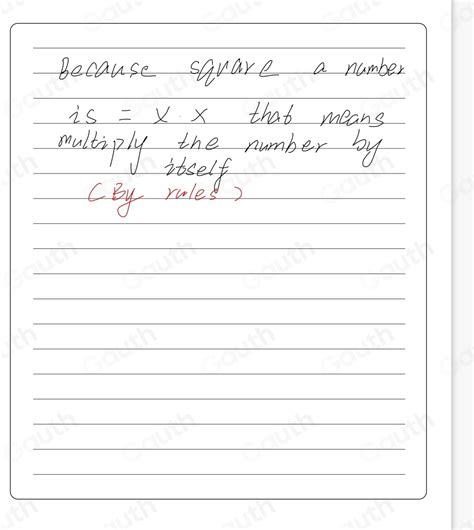 Because square a number
is = x . x that means
multiply the number by
itself
(By rules)